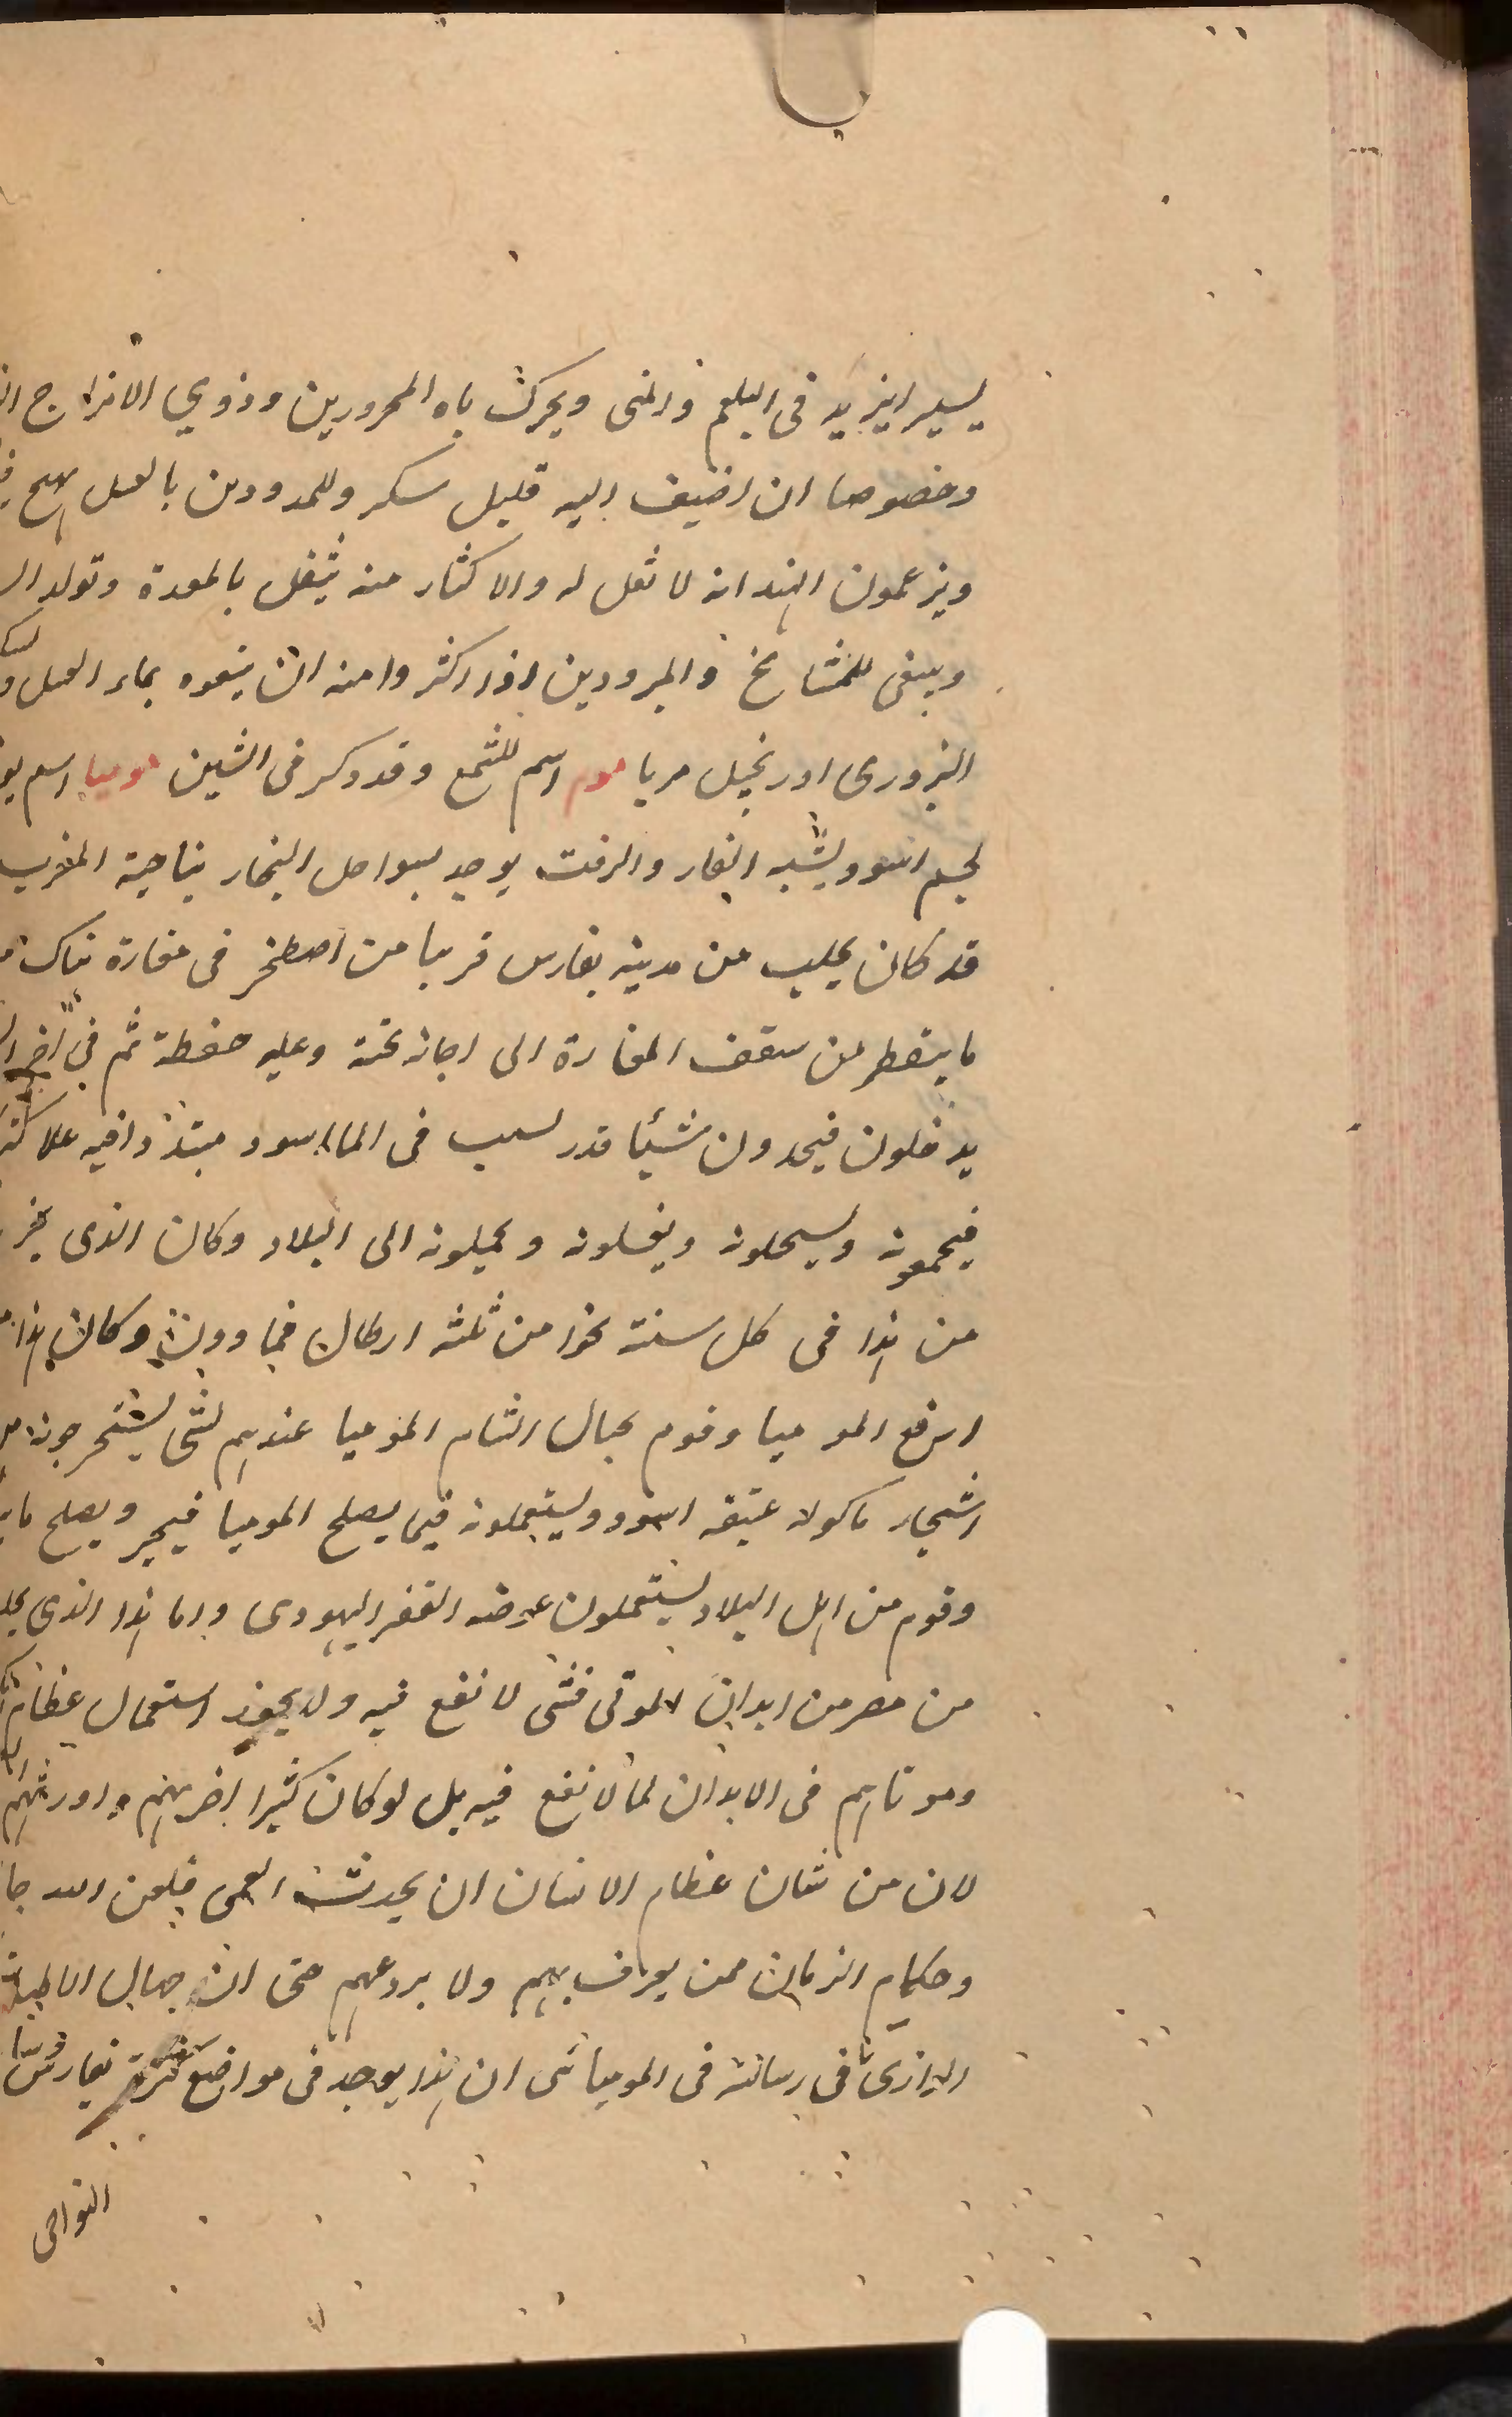 يسيرا يزيد في البلغم والمنى ويحرك باه المحرورين وذوي الامزاج
وخصوصا ان اضيف اليه قليل سكر وللمبرودين بالعسل يهيج
ويزعمون الهند انه لا ثقل له والاكثار منه يثقل بالمعدة وتولد
وينبغى للمشايخ والمبرودين اذا اكثروا منه ان يتبعوه بماء العسل
البزورى او زنجبيل مربا موم اسم للشمع وقد ذكر في الشين موميا اسم
لجسم اسود يشبه القار والزفت يوجد بسواحل البحار بناحية المغرب
قد كان يجلب من مدينة بفارس قريبا من اصطخر في مغارة هناك
ما يتقطر من سقف المغارة الى اجانة تحته وعليه حفظة ثم في آخر
يدخلون فيجدون شيئا قد رسب في الماء اسود
فيجمعونه ويسحلونه ويغسلونه ويحملونه الى البلاد وكان الذى
من هذا فى كل سنة نحوا من ثلثه ارطال فما دون وكان هذا
ارفع الموميا وقوم بجبال الشام الموميا عندهم لشى يستخرجونه
اشجار ماكولة عتيقه اسود ويستعملونه فيما يصلح الموميا فيجبر ويصلح
وقوم من اهل البلاد يستعملون عوضه القفر اليهودى واما هذا الذي
من مصر من ابدان الموتى فشى لا نفع فيه ولا يجوز استعمال عظام
وموتاهم فى الابدان لما لا نفع فيه بل لو كان كثيرا اضر بهم واورثهم
لان من شان عظام الانسان ان يحدث العمى فلعن الله
وحكام الزمان ممن يعرف بهم ولا يردعهم حتى ان جهال الاطباء
الرازى فى رسالته فى الموميائى ان هذا يوجد فى مواضع كثيرة بفارس
النواحى